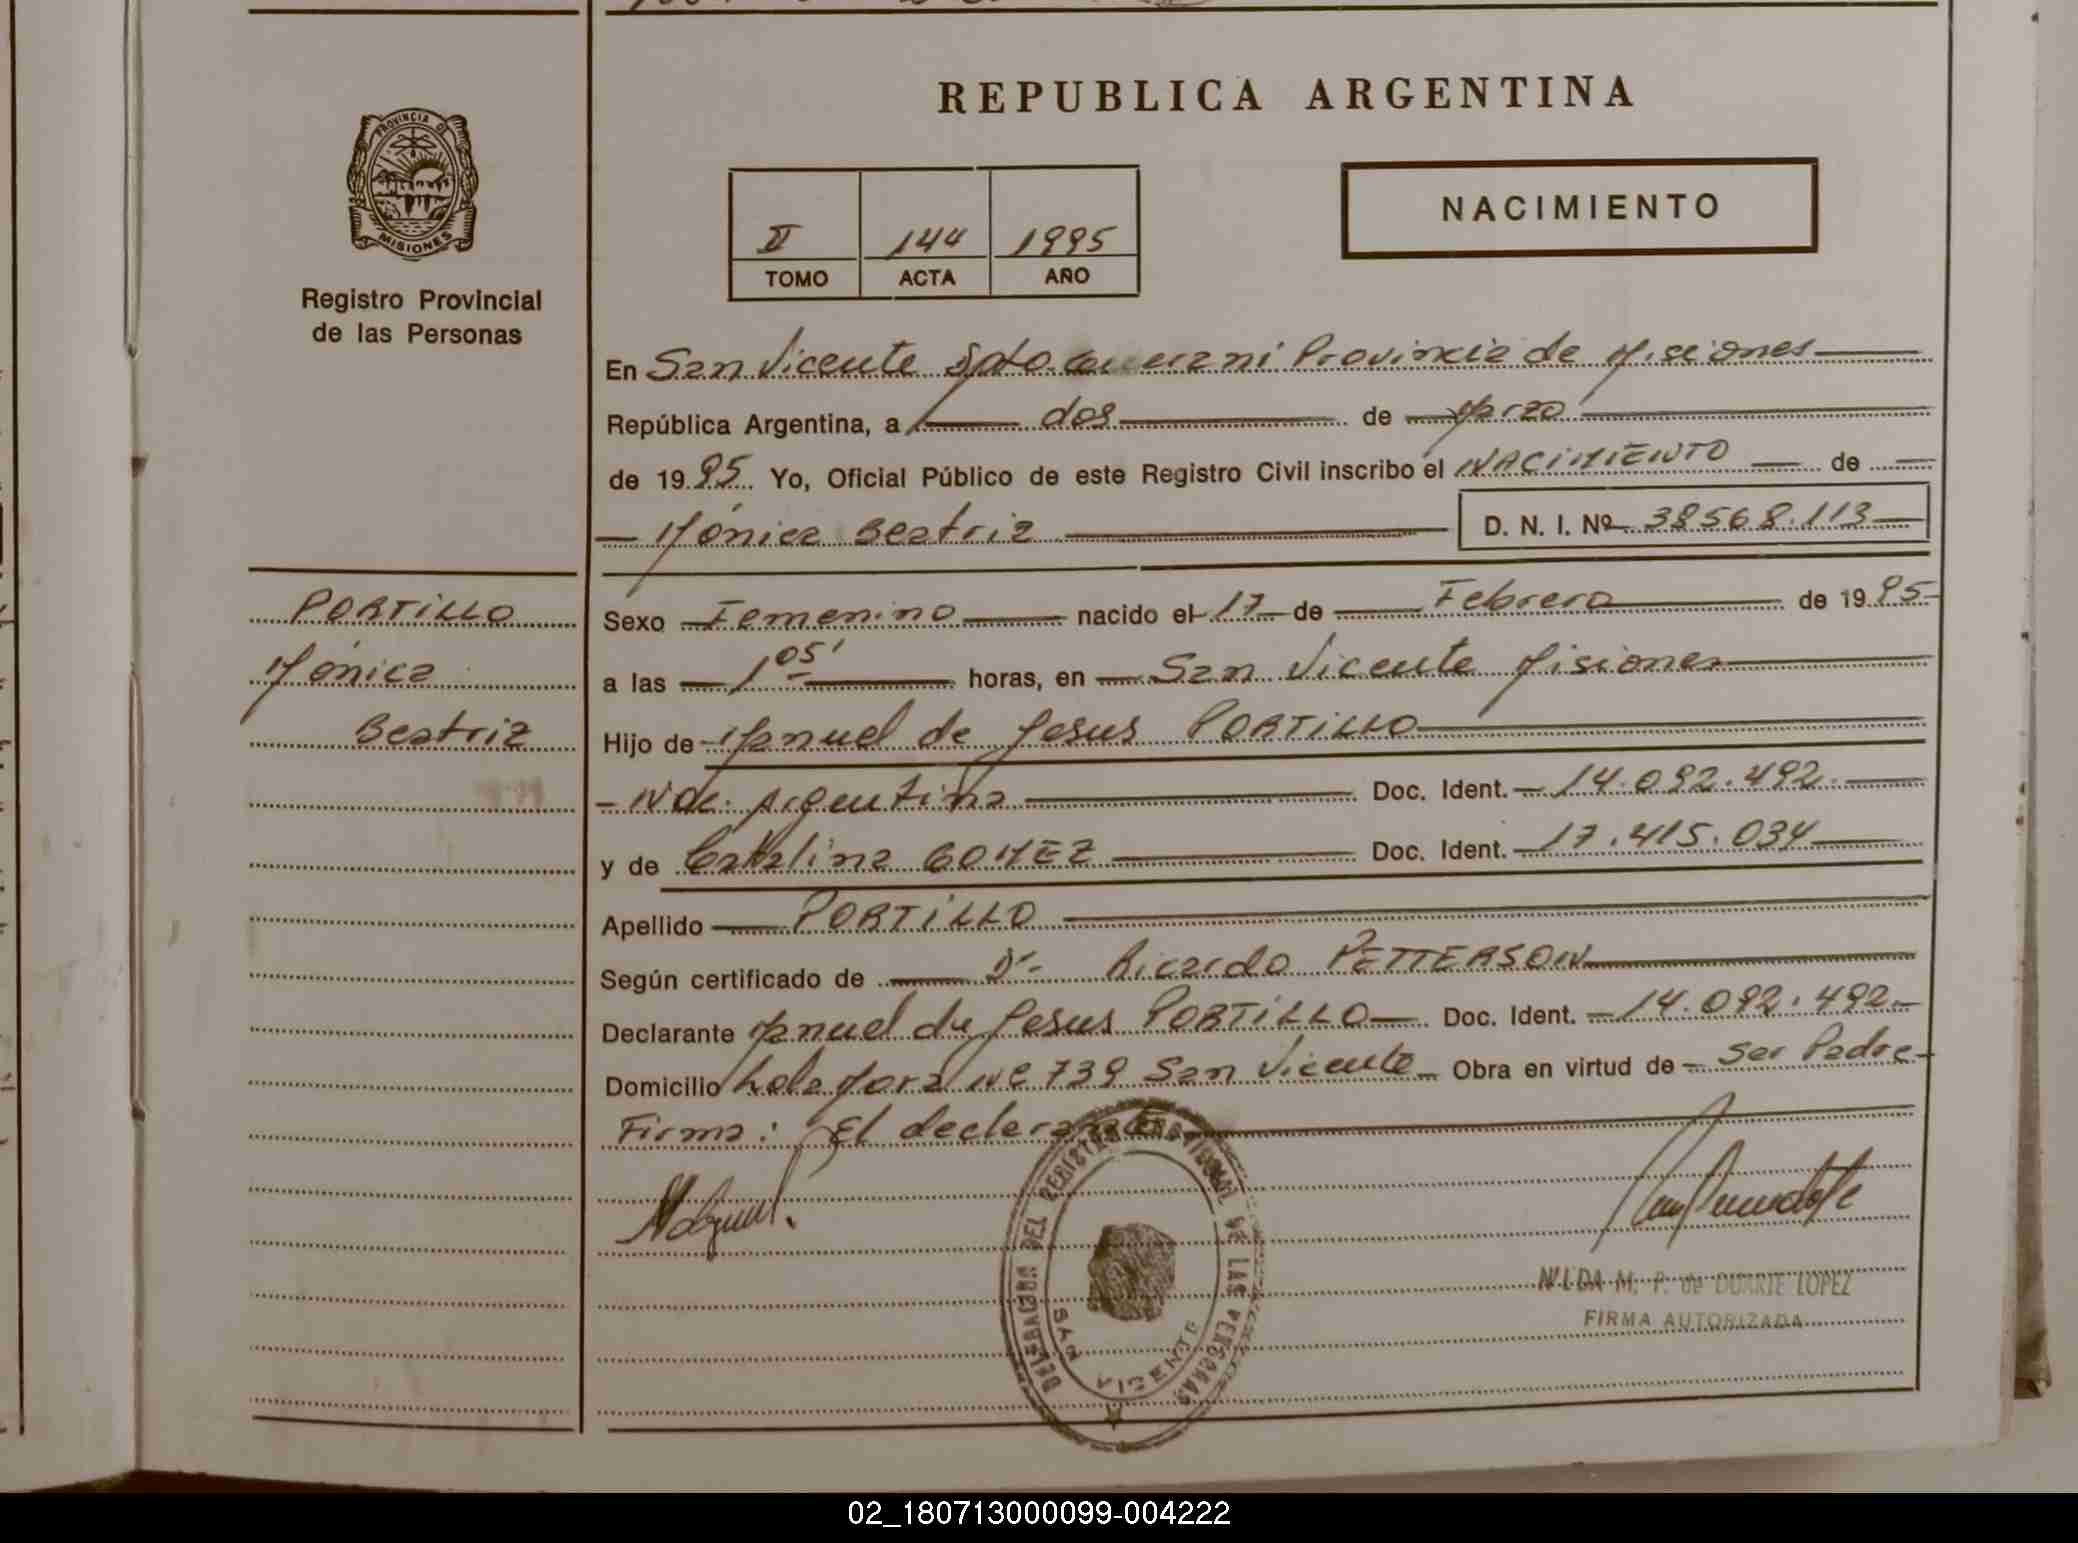 REPUBLICA ARGENTINA
PROVINCIA DE
MISIONES
Registro Provincial
de las Personas
II 144 1995
TOMO ACTA AÑO
NACIMIENTO
En San Vicente Dpto. Guaraní Provincia de Misiones
República Argentina, a dos de Marzo
de 1995 Yo, Oficial Público de este Registro Civil inscribo el NACIMIENTO de
Mónica Beatriz D. N. I. Nº 38568.113
PORTILLO
Mónica
Beatriz
Sexo Femenino nacido el 17 de Febrero de 1995
a las 1 05' horas, en San Vicente Misiones
Hijo de Manuel de Jesus PORTILLO
Nac. Argentina Doc. Ident. 14.092.492.
y de Catalina GOMEZ Doc. Ident. 17.415.034
Apellido PORTILLO
Según certificado de Dr. Ricardo PETTERSON
Declarante Manuel de Jesus PORTILLO Doc. Ident. 14.092.492.
Domicilio Lola Mora Nº 739 San Vicente Obra en virtud de Ser Padre
Firma: El declarante
DELEGACION DEL REGISTRO PROVINCIAL DE LAS PERSONAS
SAN VICENTE
NILDA M. P. de DUARTE LOPEZ
FIRMA AUTORIZADA
02_180713000099-004222